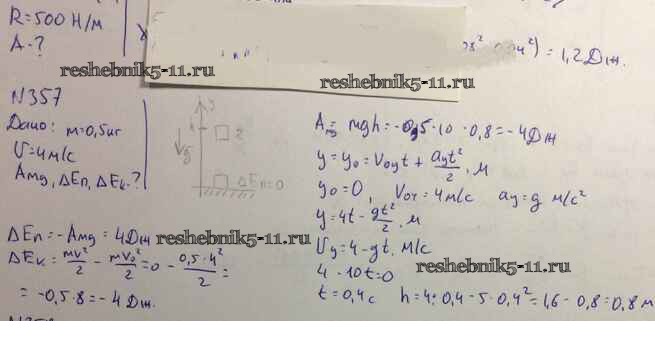 R=500 Н/м
A-?
) = 1,2 Дж.
reshebnik5-11.ru
reshebnik5-11.ru
N357
Дано: m=0,5 кг
U=4 м/с
Amg, ΔEп, ΔEк-?
y
h
2
g
ΔEп=0
Amg = mgh = -0,5·10·0,8 = -4 Дж
y = y₀ = V₀yt + ayt²/2, м
y₀=0, V₀y = 4 м/с ay = g м/с²
y = 4t - gt²/2, м
Uy = 4 - gt, м/с
4 - 10t = 0
t = 0,4 с h = 4·0,4 - 5·0,4² = 1,6 - 0,8 = 0,8 м
ΔEп = -Amg = 4 Дж
reshebnik5-11.ru
ΔEк = mv²/2 - mv₀²/2 = 0 - 0,5·4²/2 =
= -0,5·8 = -4 Дж.
reshebnik5-11.ru